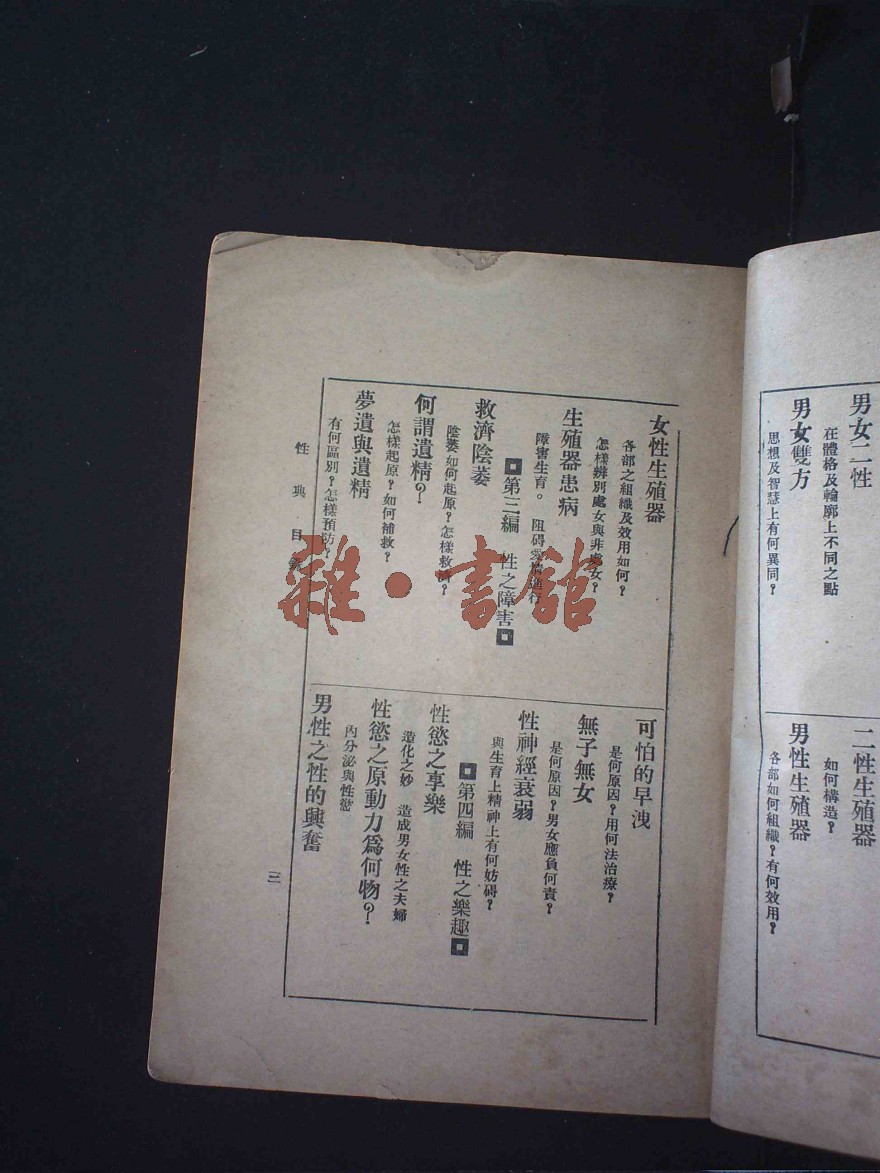 男女二性
在體格及輪廓上不同之點
男女雙方
思想及智慧上有何異同?
二性生殖器
如何構造?
男性生殖器
各部如何組織?有何效用?
女性生殖器
各部之組織及效用如何?
怎樣辨別處女與非處女?
生殖器患病
障害生育。 阻碍愛情進行
第三編 性之障害
救濟陰萎
陰萎如何起原?怎樣救濟?
何謂遺精?
怎樣起原?如何補救?
夢遺與遺精
有何區別?怎樣預防?
可怕的早洩
是何原因?用何法治療?
無子無女
是何原因?男女應負何責?
性神經衰弱
與生育上精神上有何妨碍?
第四編 性之樂趣
性慾之享樂
造化之妙 造成男女性之夫婦
性慾之原動力爲何物?
內分泌與性慾
男性之性的興奮
性典目錄
三
雜·書館